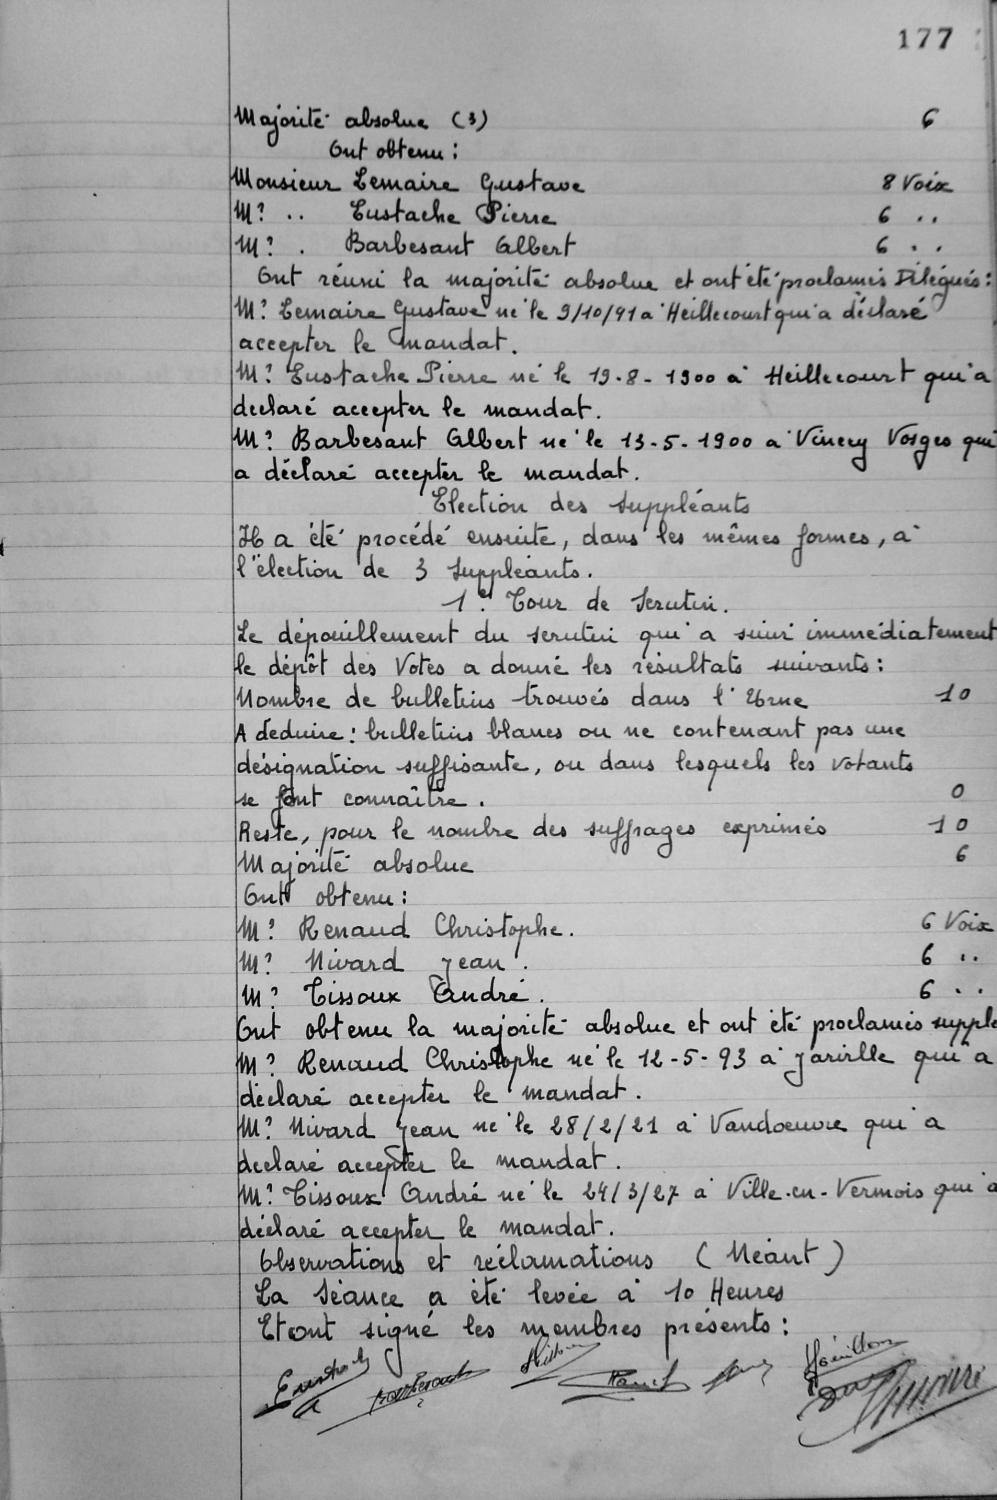 177
Majorité absolue (3) 6
Ont obtenu :
Monsieur Lemaire Gustave 8 Voix
Mr .. Eustache Pierre 6 ..
Mr . Barbesant Albert 6 ..
Ont réuni la majorité absolue et ont été proclamés Délégués :
Mr Lemaire Gustave né le 9/10/91 à Heillecourt qui a déclaré
accepter le mandat.
Mr Eustache Pierre né le 19-8-1900 à Heillecourt qui a
declaré accepter le mandat.
Mr Barbesant Albert né le 13-5-1900 à Vincey Vosges qui
a déclaré accepter le mandat.
Election des suppléants
Il a été procédé ensuite, dans les mêmes formes, à
l'élection de 3 Suppléants.
1er Tour de Scrutin.
Le dépouillement du scrutin qui a suivi immédiatement
le dépôt des Votes a donné les résultats suivants :
Nombre de bulletins trouvés dans l'Urne 10
A deduire : bulletins blancs ou ne contenant pas une
désignation suffisante, ou dans lesquels les votants
se font connaître. 0
Reste, pour le nombre des suffrages exprimés 10
Majorité absolue 6
Ont obtenu :
Mr Renaud Christophe. 6 Voix
Mr Nivard Jean. 6 ..
Mr Tissoux André. 6 ..
Ont obtenu la majorité absolue et ont été proclamés supplé
Mr Renaud Christophe né le 12-5-93 à Jarville qui a
déclaré accepter le mandat.
Mr Nivard Jean né le 28/2/21 à Vandoeuvre qui a
declaré accepter le mandat.
Mr Tissoux André né le 24/3/27 à Ville-en-Vermois qui a
déclaré accepter le mandat.
Observations et réclamations (Néant)
La Séance a été levée à 10 Heures
Et ont signé les membres présents :